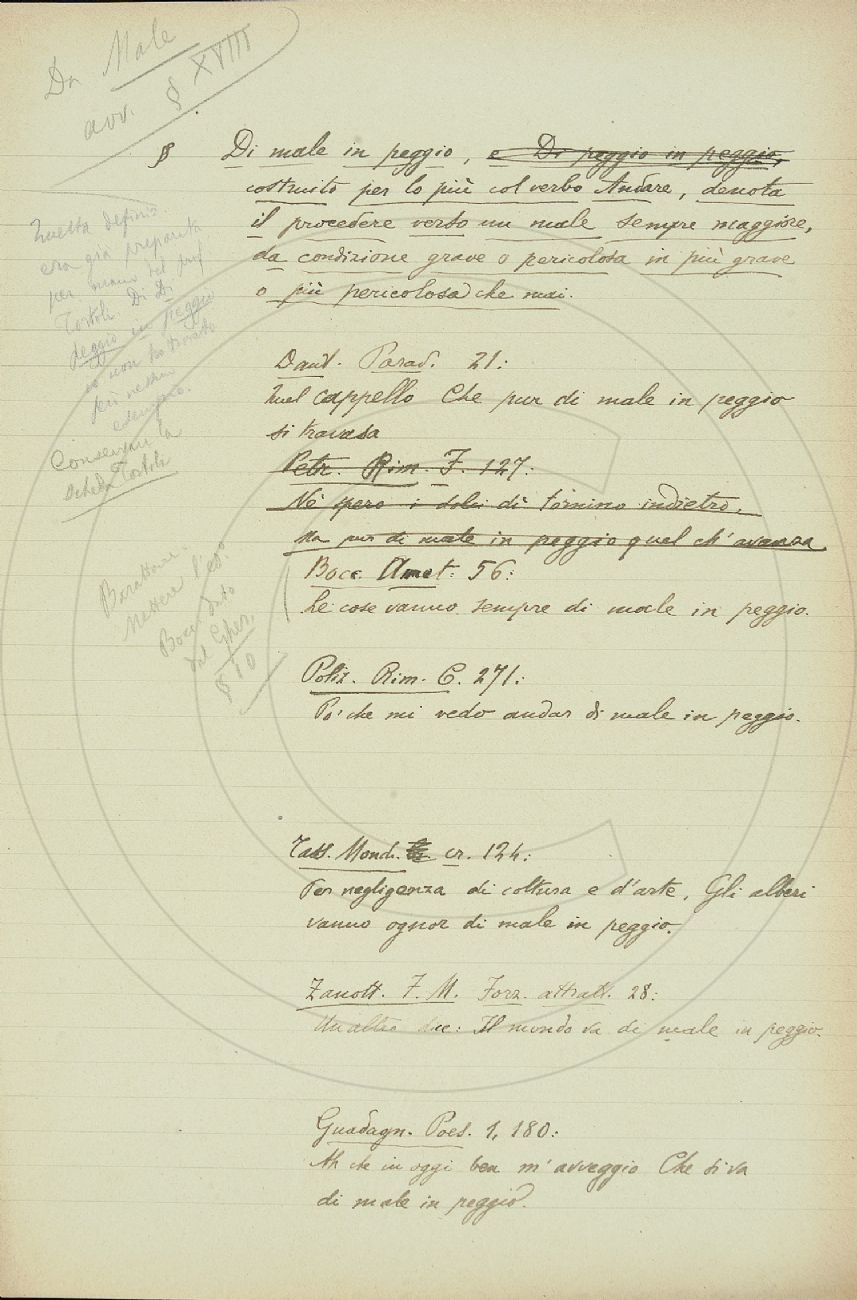 Da Male
avv. § XVIII
§ Di male in peggio, e Di peggio in peggio,
costruito per lo più col verbo Andare, denota
il procedere verso un male sempre maggiore,
da condizione grave o pericolosa in più grave
o più pericolosa che mai.
Questa definiz.
era già preparata
per mano del prof.
Tortoli. Di Di
peggio in peggio
io non ho trovato
più nessun
esempio.
Conservare la
scheda Tortoli
Dant. Parad. 21:
Quel cappello Che pur di male in peggio
si travasa
Petr. Rim. F. 127:
Nè spero i dolci dì tornino indietro,
Ma pur di male in peggio quel ch'avanza
Bocc. Amet. 56:
Le cose vanno sempre di male in peggio.
Barattare.
Mettere l'es.º
Bocc. dato
dal Gher.
§ 10
Poliz. Rim. C. 271:
Poi che mi vedo andar di male in peggio.
Tass. Mond. cr. 124:
Per negligenza di coltura e d'arte, Gli alberi
vanno ognor di male in peggio.
Zanott. F. M. Forz. attratt. 28:
Un altro dice: Il mondo va di male in peggio.
Guadagn. Poes. 1, 180:
Ah che in oggi ben m'avveggio Che si va
di male in peggio.